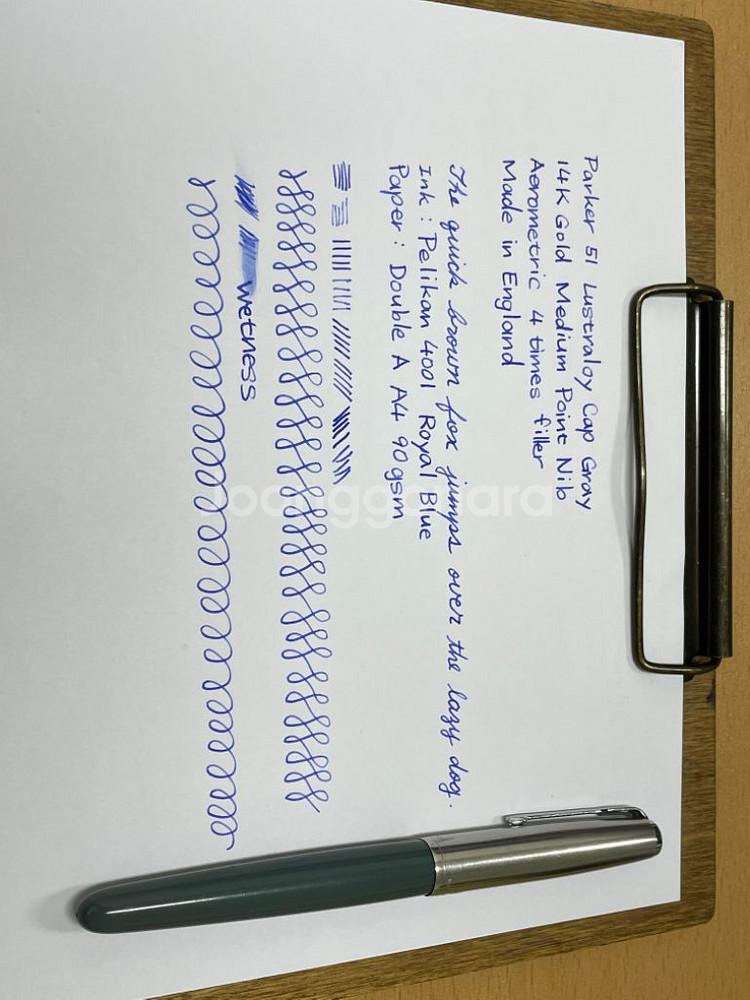 Parker 51 Lustraloy Cap Gray
14K Gold Medium Point Nib
Aerometric 4 times filler
Made in England
The quick brown fox jumps over the lazy dog.
Ink : Pelikan 4001 Royal Blue
Paper : Double A A4 90gsm
wetness
joonggonara